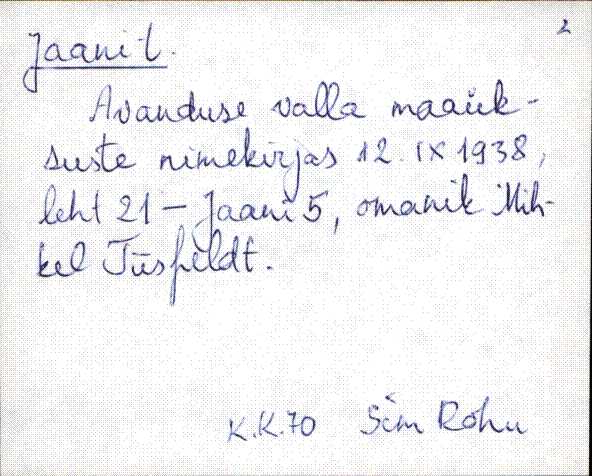 2
Jaani t.
Avanduse valla maaük-
suste nimekirjas 12. IX 1938,
leht 21 – Jaani 5, omanik Mih-
kel Tiisfeldt.
K.K.70 Sim Rohu